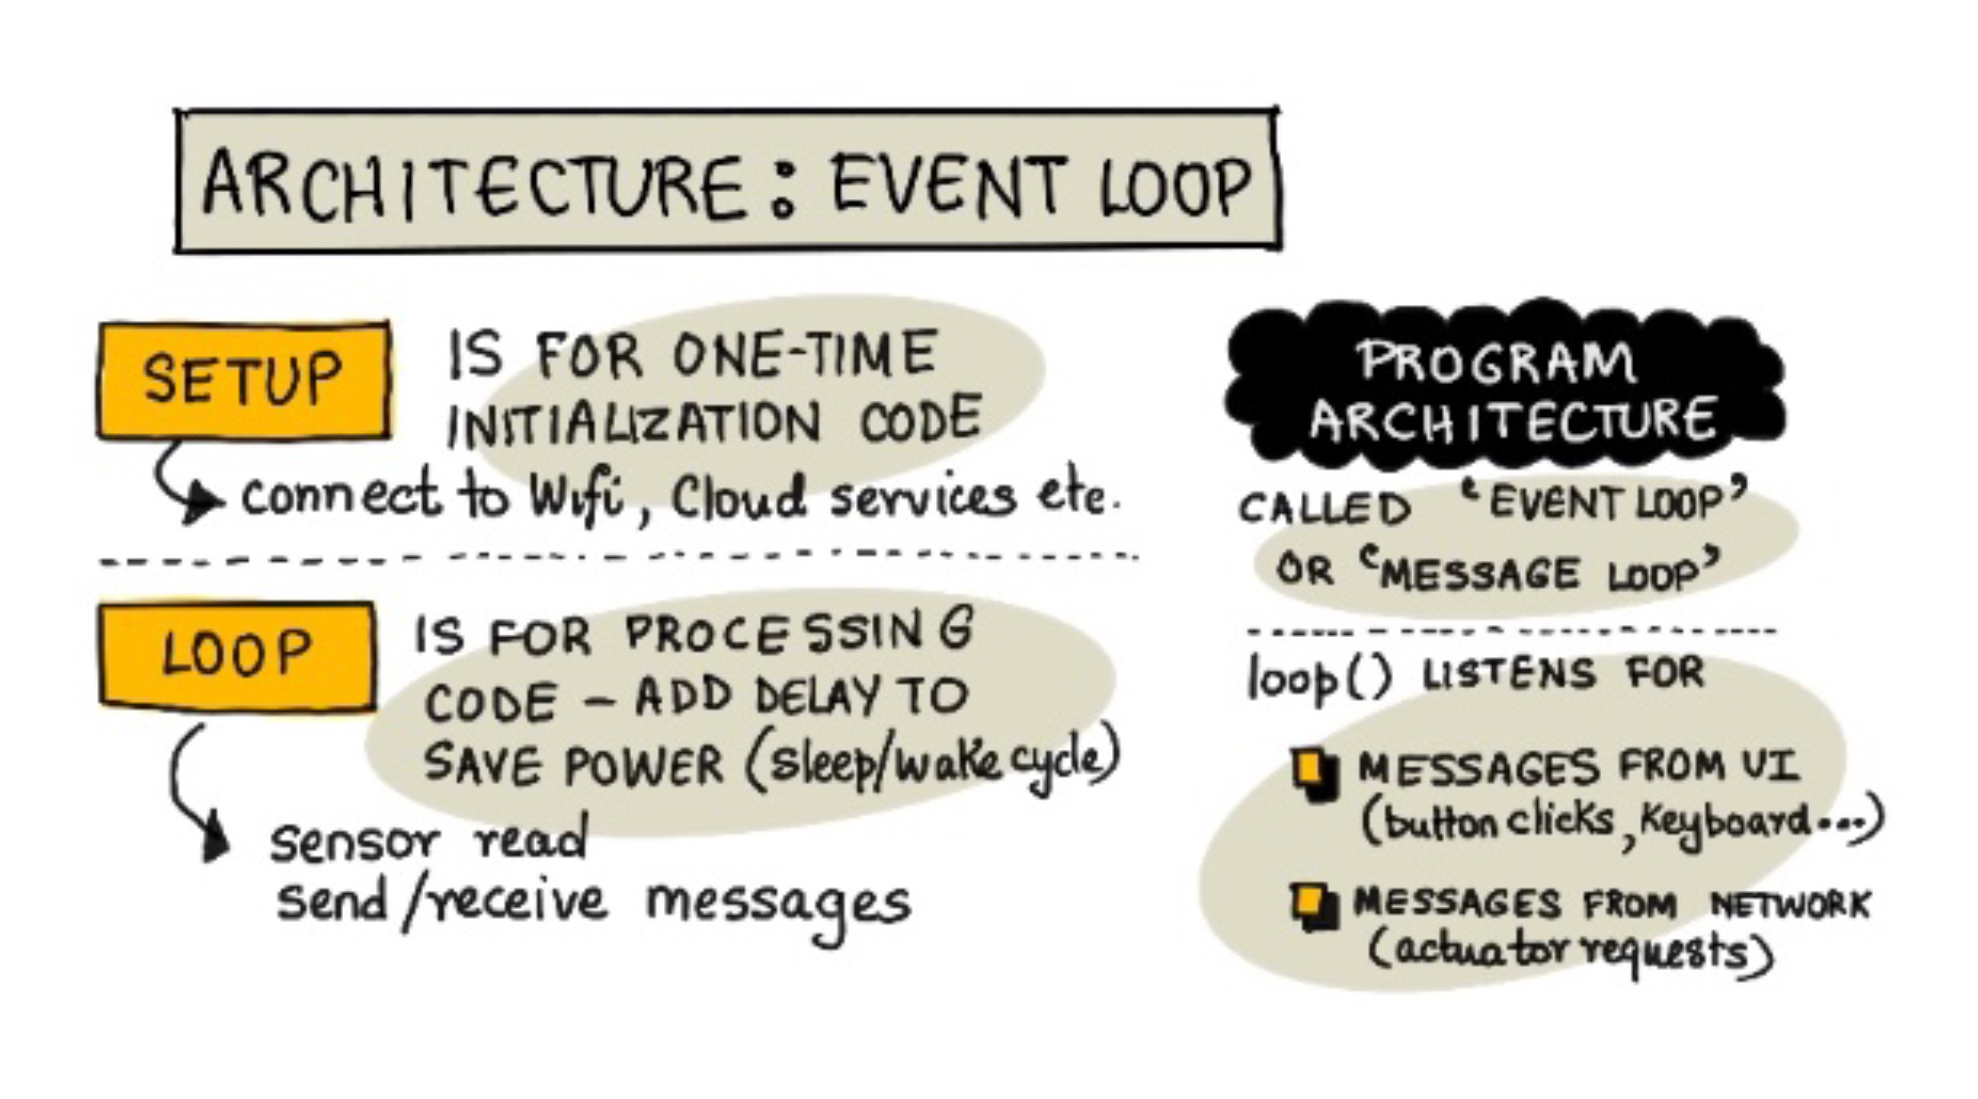 ARCHITECTURE: EVENT LOOP
SETUP
IS FOR ONE-TIME
INITIALIZATION CODE
connect to Wifi, Cloud services etc.
LOOP
IS FOR PROCESSING
CODE - ADD DELAY TO
SAVE POWER (sleep/wake cycle)
sensor read
send/receive messages
PROGRAM
ARCHITECTURE
CALLED 'EVENT LOOP'
OR 'MESSAGE LOOP'
loop() LISTENS FOR
MESSAGES FROM UI
(button clicks, keyboard...)
MESSAGES FROM NETWORK
(actuator requests)